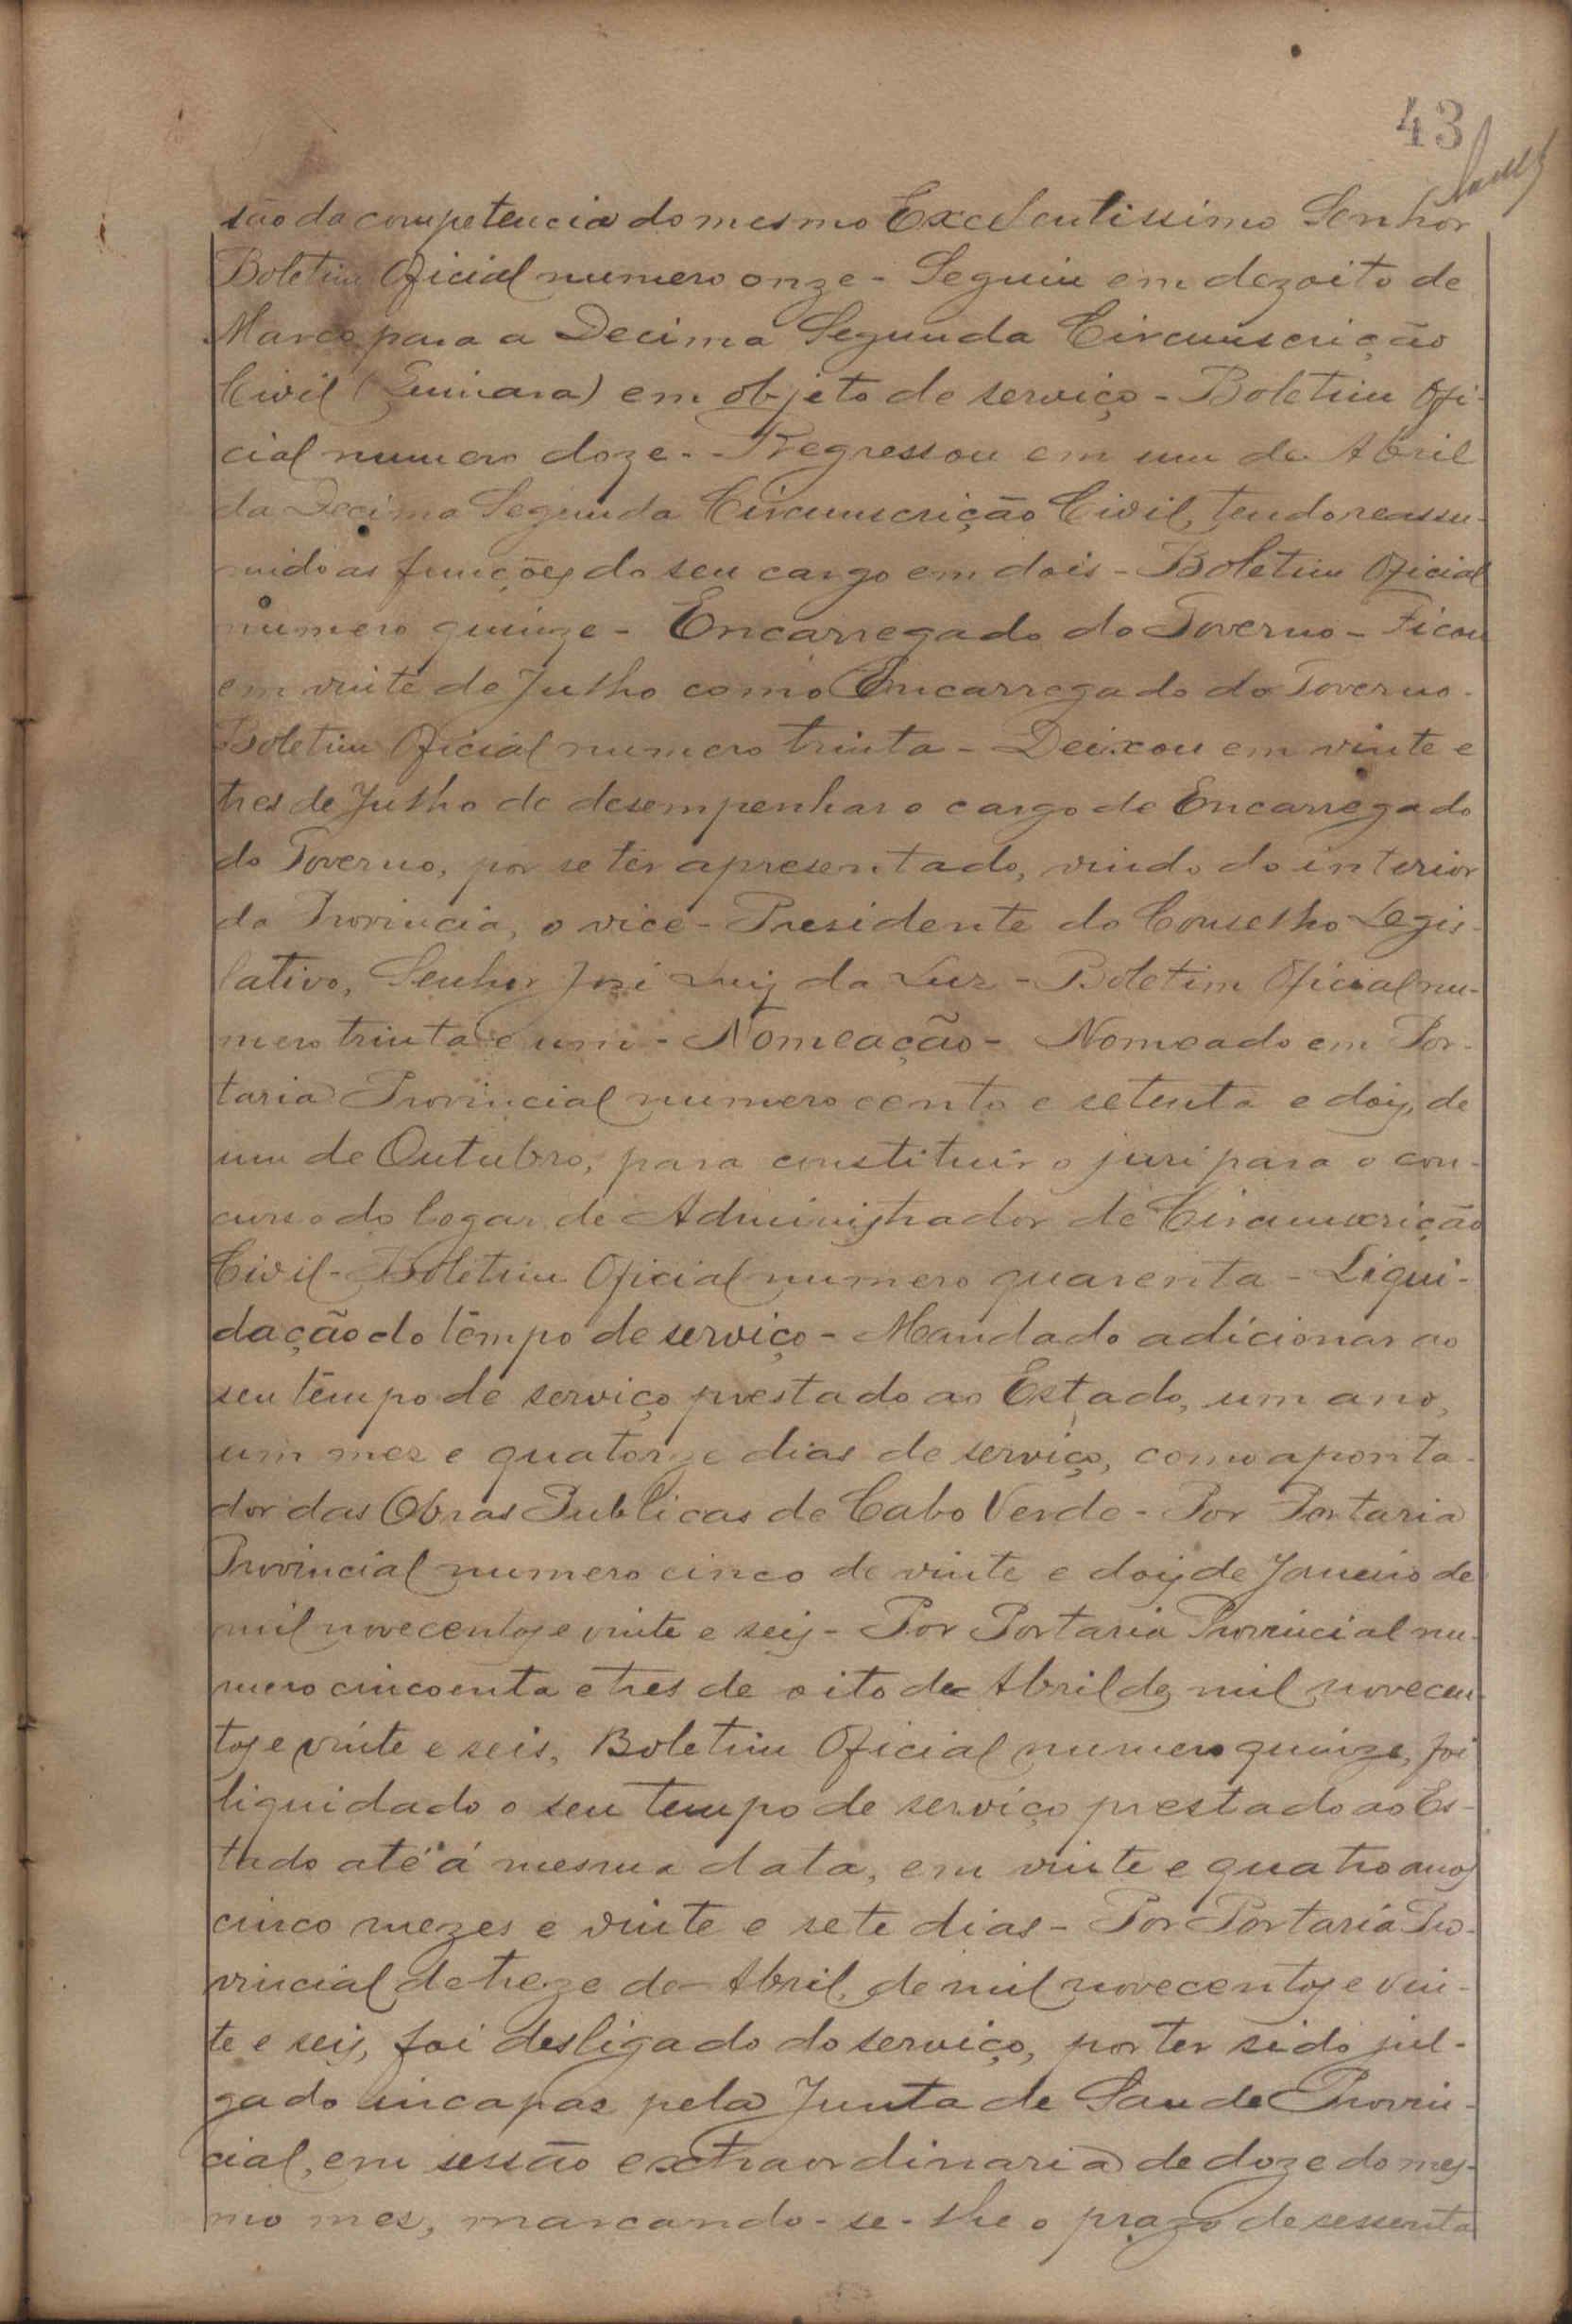 43
são da competencia do mesmo Excelentissimo Senhor
Boletim Oficial numero onze - Seguiu em dezoito de
Março para a Decima Segunda Circunscrição
Civil (Quinara) em objeto de serviço - Boletim Ofi-
cial numero doze - Regressou em um de Abril
da Decima Segunda Circunscrição Civil, tendo reassu-
mido as funções do seu cargo em dois - Boletim Oficial
numero quinze - Encarregado do Governo - Ficou
em vinte de Julho como Encarregado do Governo -
Boletim Oficial numero trinta - Deixou em vinte e
tres de Julho de desempenhar o cargo de Encarregado
do Governo, por se ter apresentado, vindo do interior
da Provincia, o vice-Presidente do Conselho Legis-
lativo, Senhor José Luiz da Luz - Boletim Oficial nu-
mero trinta e um - Nomeação - Nomeado em Por-
taria Provincial numero cento e setenta e dois, de
um de Outubro, para constituir o juri para o con-
curso do logar de Administrador de Circunscrição
Civil - Boletim Oficial numero quarenta - Liqui-
dação do têmpo de serviço - Mandado adicionar ao
seu têmpo de serviço prestado ao Estado, um ano,
um mez e quatorze dias de serviço, como aponta-
dor das Obras Publicas de Cabo Verde - Por Portaria
Provincial numero cinco de vinte e dois de Janeiro de
mil novecentos e vinte e seis - Por Portaria Provincial nu-
mero cincoenta e tres de oito de Abril de mil novecen-
tos e vinte e seis, Boletim Oficial numero quinze, foi
liquidado o seu tempo de serviço prestado ao Es-
tado até á mesma data, em vinte e quatro anos
cinco mezes e vinte e sete dias - Por Portaria Pro-
vincial de treze de Abril de mil novecentos e vin-
te e seis, foi desligado do serviço, por ter sido jul-
gado incapaz pela Junta de Saude Provin-
cial, em sessão extraordinaria de doze do mes-
mo mes, marcando-se-lhe o prazo de sessenta